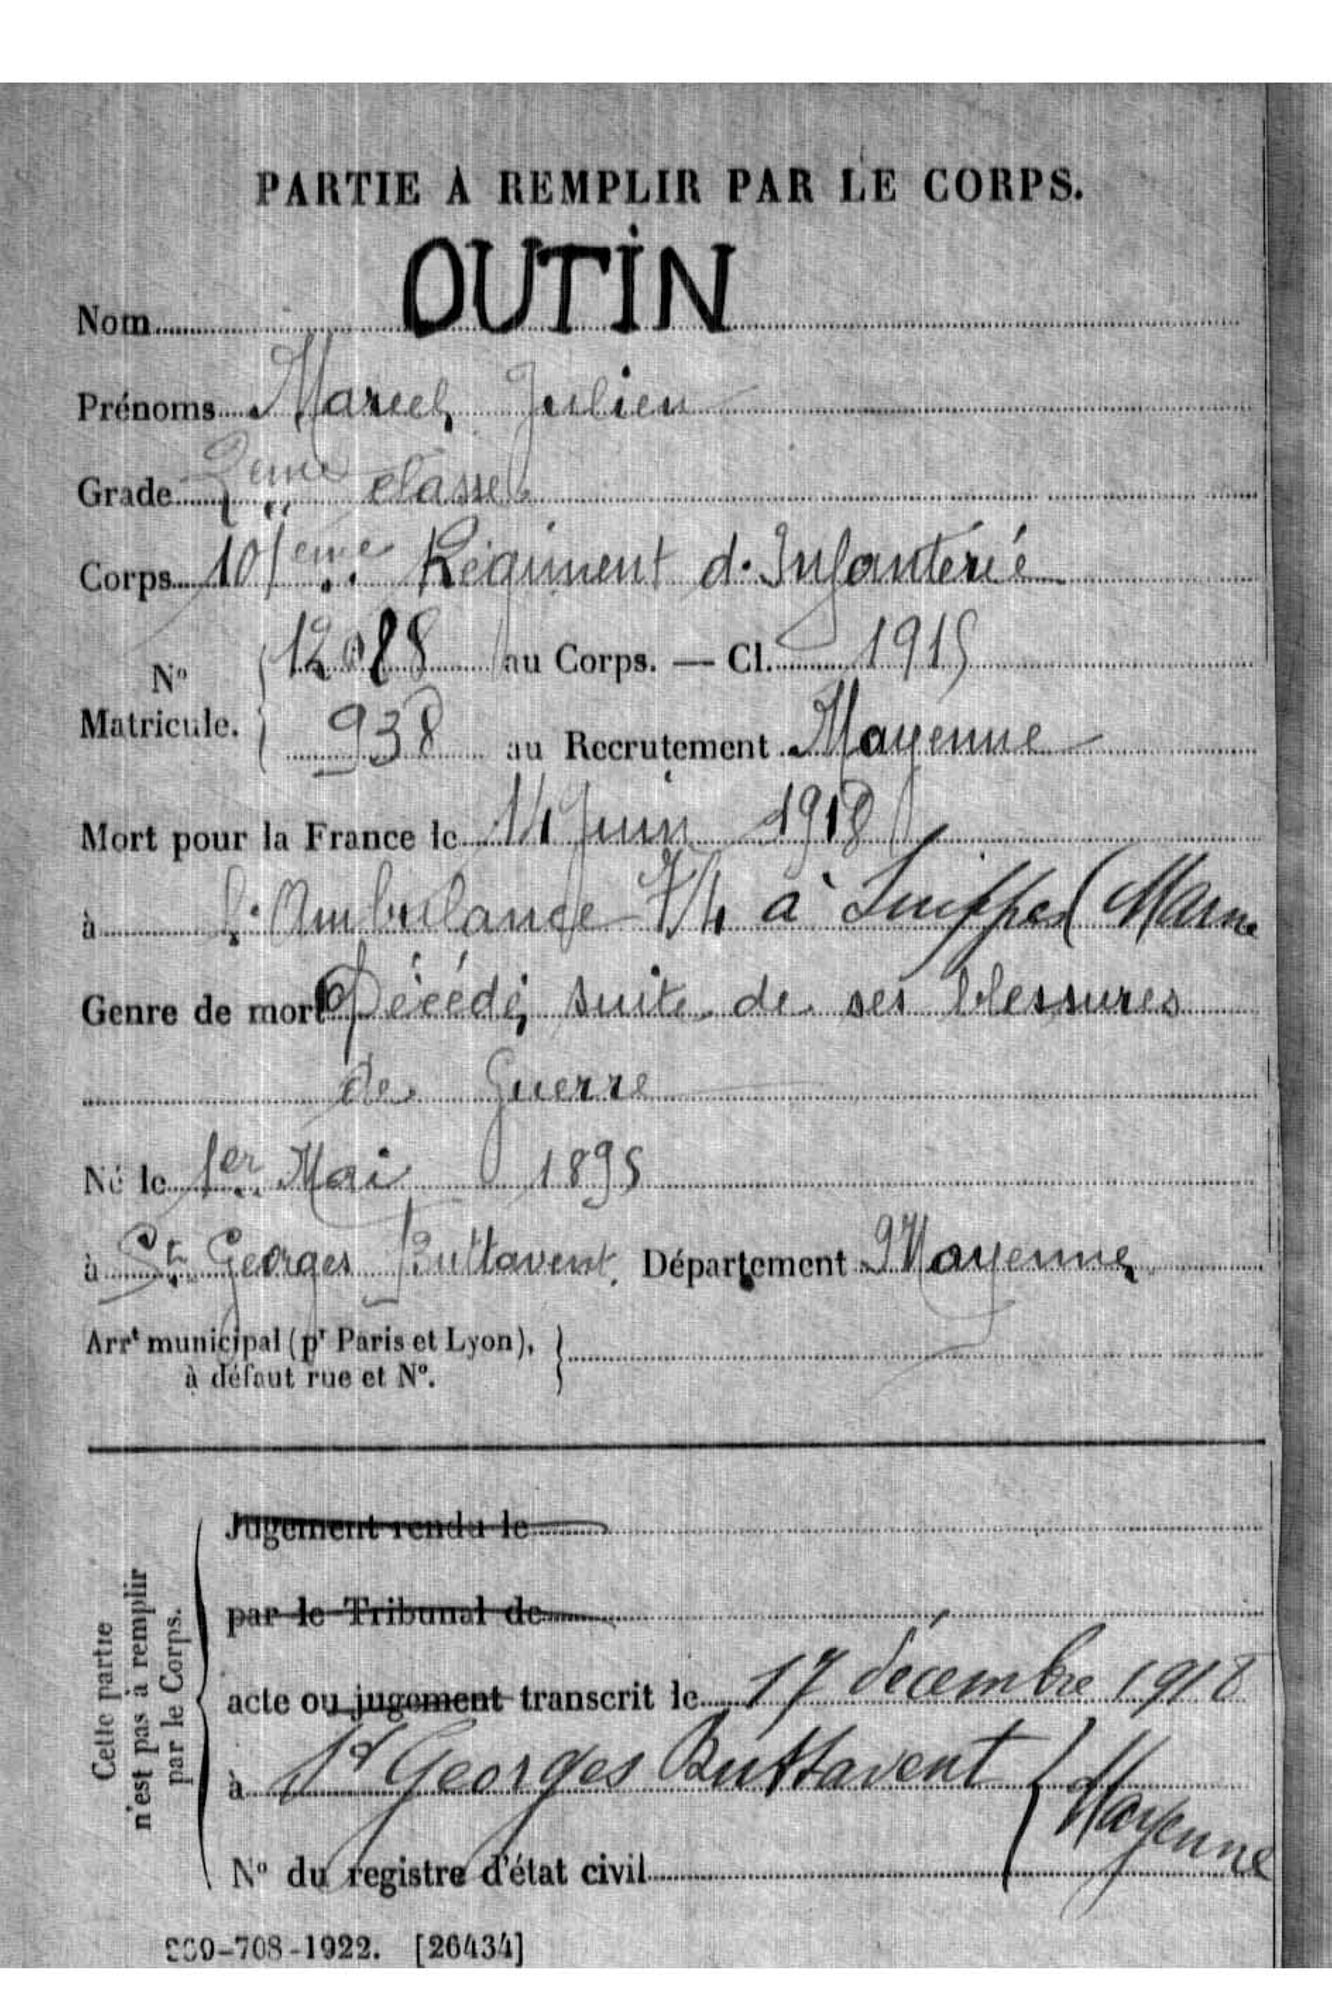 PARTIE A REMPLIR PAR LE CORPS.
Nom OUTIN
Prénoms Marcel Julien
Grade 2ème classe
Corps 101ème Régiment d'Infanterie
Nº Matricule. { 12088 au Corps. — Cl. 1915
938 au Recrutement Mayenne
Mort pour la France le 14 Juin 1918
à l'Ambulance 7/4 à Suippes (Marne
Genre de mort Décédé suite de ses blessures
de Guerre
Né le 1er Mai 1895
à St Georges Buttavent Département Mayenne
Arrt municipal (pr Paris et Lyon),
à défaut rue et Nº.
Cette partie
n'est pas à remplir
par le Corps.
Jugement rendu le
par le Tribunal de
acte ou jugement transcrit le 17 décembre 1918
à St Georges Buttavent (Mayenne
Nº du registre d'état civil
-708-1922. [26434]